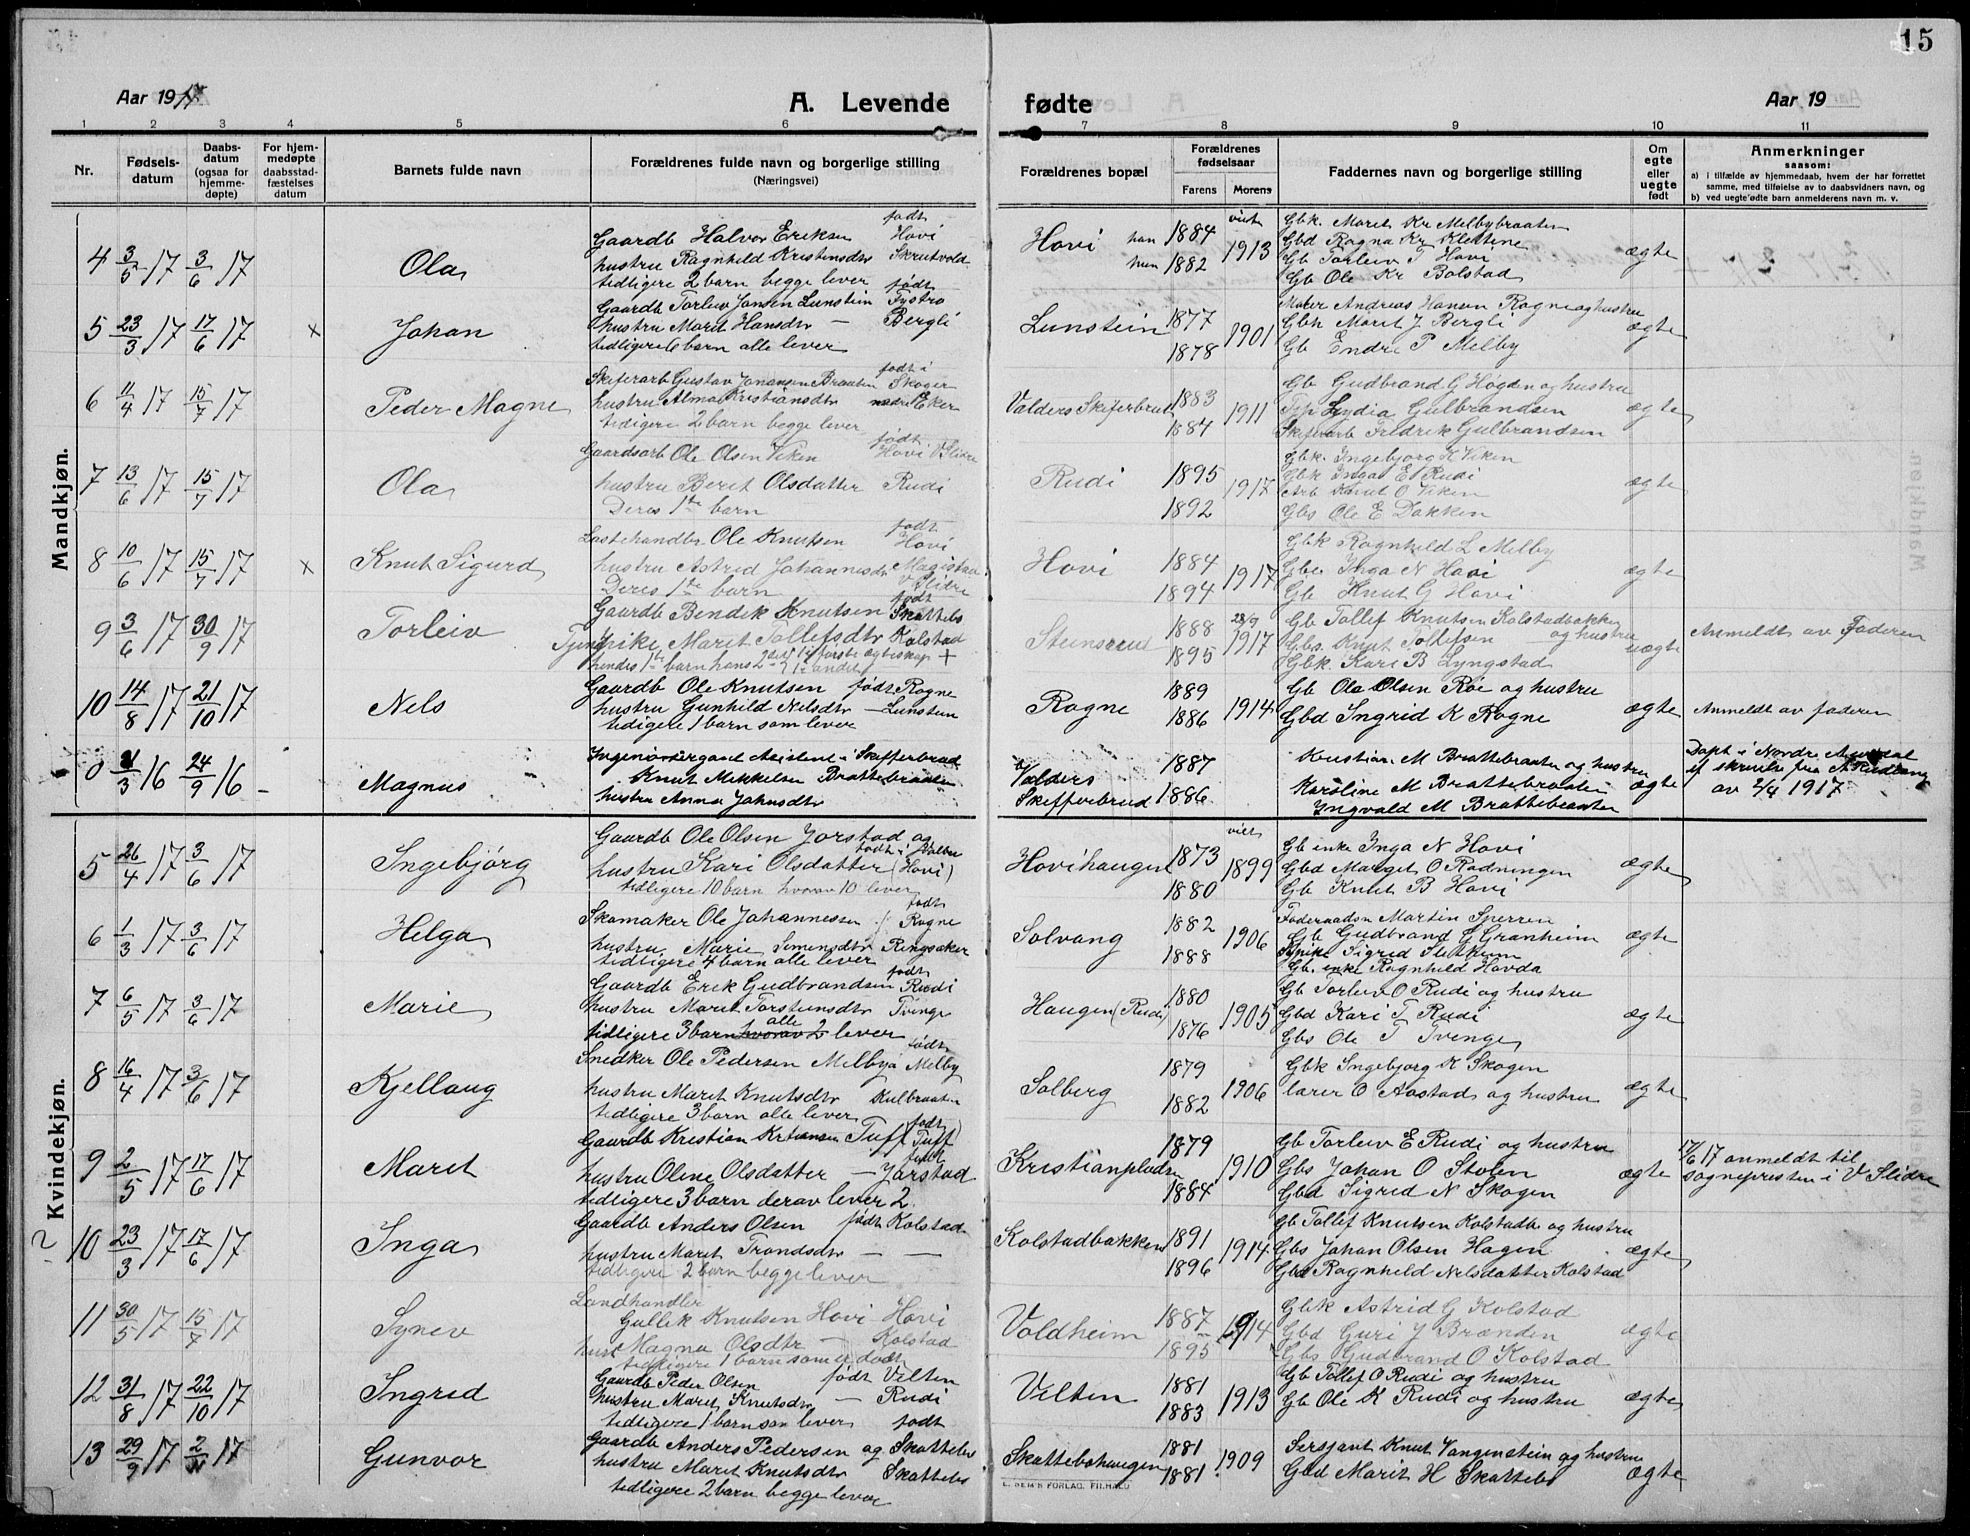 15
Aar 1917
A. Levende fødte
Aar 19
1 2 3 4 5 6 7 8 9 10 11
Nr.
Fødsels-
datum
Daabs-
datum
(ogsaa for
hjemme-
døpte)
For hjem-
medøpte
daabsstad-
fæstelses
datum
Barnets fulde navn
Forældrenes fulde navn og borgerlige stilling
(Næringsvei)
Forældrenes bopæl
Forældrenes
fødselsaar
Farens Morens
Faddernes navn og borgerlige stilling
Om
egte
eller
uegte
født
Anmerkninger
saasom:
a) i tilfælde av hjemmedaab, hvem der har forrettet
samme, med tilføielse av to daabsvidners navn, og
b) ved uegte fødte barn anmelderens navn m. v.
Mandkjøn.
4 3/5 17 3/6 17 Ola
Gaardb Halvor Eriksen født Hovi
hustru Ragnhild Kristensdtr Skrutvold
tidligere 2 barn begge lever
Hovi han 1884 hun 1882 viet 1913
Gbk. Marit Kr Melbybraaten
Gbd Ragna Kr Klettene
Gb Torleiv T Hovi
Gb Ole Kr Bolstad
ægte
5 23/3 17 17/6 17 x Johan
Gaardb Torleiv Jonsen Lunstein født Fystro
hustru Marit Hansdtr — Bergli
tidligere 6 barn alle lever
Lunstein 1877 1878 1901
Maler Andreas Hansen Rogne og hustru
Gbk Marit J Bergli
Gb Endre P Melby
ægte
6 11/4 17 15/7 17 Peder Magne
Skiferarb Gustav Johansen Braaten født i Skoger
hustru Alma Kristiansdtr Eker
tidligere 2 barn begge lever
Valders Skiferbrud 1883 1884 1911
Gb Gudbrand G Høgden og hustru
Lydia Gulbrandsen
Skiferarb Fredrik Gulbrandsen
ægte
7 13/6 17 15/7 17 Ola
Gaardsarb Ole Olsen Viken født Hovi V Slidre
hustru Berit Olsdatter Rudi
Deres 1te barn
Rudi 1895 1892 1917
Gbk. Ingebjorg K Viken
Gbk Inga E Rudi
Arb Knut O Viken
Gbs Ole E Dokken
ægte
8 10/6 17 15/7 17 x Knut Sigurd
Ole Knutsen født Hovi
hustru Astrid Johannesdtr Magistad V Slidre
Deres 1te barn
Hovi 1884 1894 1917
Gbk Ragnhild L Melby
Gbe Inga N Hovi
Gb Knut G Hovi
ægte
9 3/6 17 30/9 17 Torleiv
Gaardb Bendik Knutsen født Skattebo
Marit Tollefsdtr Kolstad
hendes 1te barn hans 2
Steinsrud 1888 1895 28/9 1917
Gb Tollef Knutsen Kolstadbakken og hustru
Gbs. Knut Tollefsen
Gbk. Kari B Lyngstad
uægte
Anmeldt av Faderen
10 14/8 17 21/10 17 Nels
Gaardb Ole Knutsen født Rogne
hustru Gunhild Nilsdtr — Lunstein
tidligere 1 barn som lever
Rogne 1889 1886 1914
Gb Ola Olsen Røe og hustru
Gbd Ingrid K Rogne
ægte
Anmeldt av faderen
0 21/3 16 24/9 16 — Magnus
Knut Mikkelsen Brattebraaten
hustru Anna Johnsdtr
Valders Skifferbrud 1887 1886
Kristian M Brattebraaten og hustru
Karoline M Brattebraaten
Ingvald M Brattebraaten
ægte
Døpt i Nordre Aurdal
av 2/4 1917
Kvindekjøn.
5 26/4 17 3/6 17 Ingebjörg
Gaardb Ole Olsen Jorstad og
hustru Kari Olsdatter (Hovi)
tidligere 10 barn hvorav 10 lever
Hovihaugen 1873 1880 viet 1899
Gb enke Inga N Hovi
Gbd Marget O Rødningen
Gb Knut B Hovi
ægte
6 1/3 17 3/6 17 Helga
Skomaker Ole Johannessen født Rogne
hustru Marie Simensdtr Ringsaker
tidligere 4 barn alle lever
Solvang 1882 1888 1906
Føderaadsm Martin Sperren
Gb Gudbrand G Granheim
Sigrid Slettum
Gb. enke Ragnhild Havda
ægte
7 6/5 17 3/6 17 Marie
Gaardb Erik Gudbrandsen født Rudi
hustru Marit Torstiensdtr Tvinge
tidligere 3 barn hvorav 2 alle lever
Haugen (Rudi) 1880 1876 1905
Gb Torleiv O Rudi og hustru
Gbd Kari T Rudi
Gbs Ole T Tvinge
ægte
8 16/4 17 3/6 17 Kjellaug
Snedker Ole Pedersen Melbya født Melby
hustru Marit Knutsdtr Kulbraaten
tidligere 3 barn alle lever
Solberg 1879 1882 1906
Gbk Ingebjorg K Skogen
lærer O Aastad og hustru
ægte
9 2/5 17 17/6 17 Marit
Gaardb Kristian Kristiansen Tuff (født Tuff)
hustru Oline Olsdatter — født Jorstad
tidligere 3 barn derav lever 2.
Kristianplads 1879 1884 1910
Gb Torleiv E Rudi og hustru
Gbs Johan O Stølen
Gbd Sigrid N Skogen
ægte
17/6 17 anmeldt til
sognepresten i V Slidre
? 10 23/3 17 17/6 17 Inga
Gaardb Anders Olsen født Kolstad
hustru Marit Trondsdtr — —
tidligere 2 barn begge lever
Kolstadbakken 1891 1896 1914
Gb Tollef Knutsen Kolstadb og hustru
Gbs Johan Olsen Hagen
Gbd Ragnhild Nelsdatter Kolstad
ægte
11 30/5 17 15/7 17 Synev
Landhandler
Gullik Knutsen Hovi Hovi
hust Magna Olsdtr — Kolstad
tidligere 1 barn som er dødt
Voldheim 1887 1895 1914
Gbk Astrid G Kolstad
Gbd Guri J Brænden
Gbs Gudbrand O Kolstad
ægte
12 31/8 17 22/10 17 Ingrid
Gaardb Peder Olsen født Velten
hustru Marit Knutsdtr — Rudi
tidligere 1 barn som lever
Velten 1881 1883 1913
Gb Tollef O Rudi og hustru
Gb Ole K Rudi og hustru
ægte
13 29/9 17 2/11 17 Gunvor
Gaardb Anders Pedersen og født Skattebo
hustru Marit Knutsdtr Skattebo
tidligere 2 barn begge lever
Skattebohaugen 1881 1881 1909
Sersjant Knut Vangenstein og hustru
Gbd Marit H Skattebo
ægte